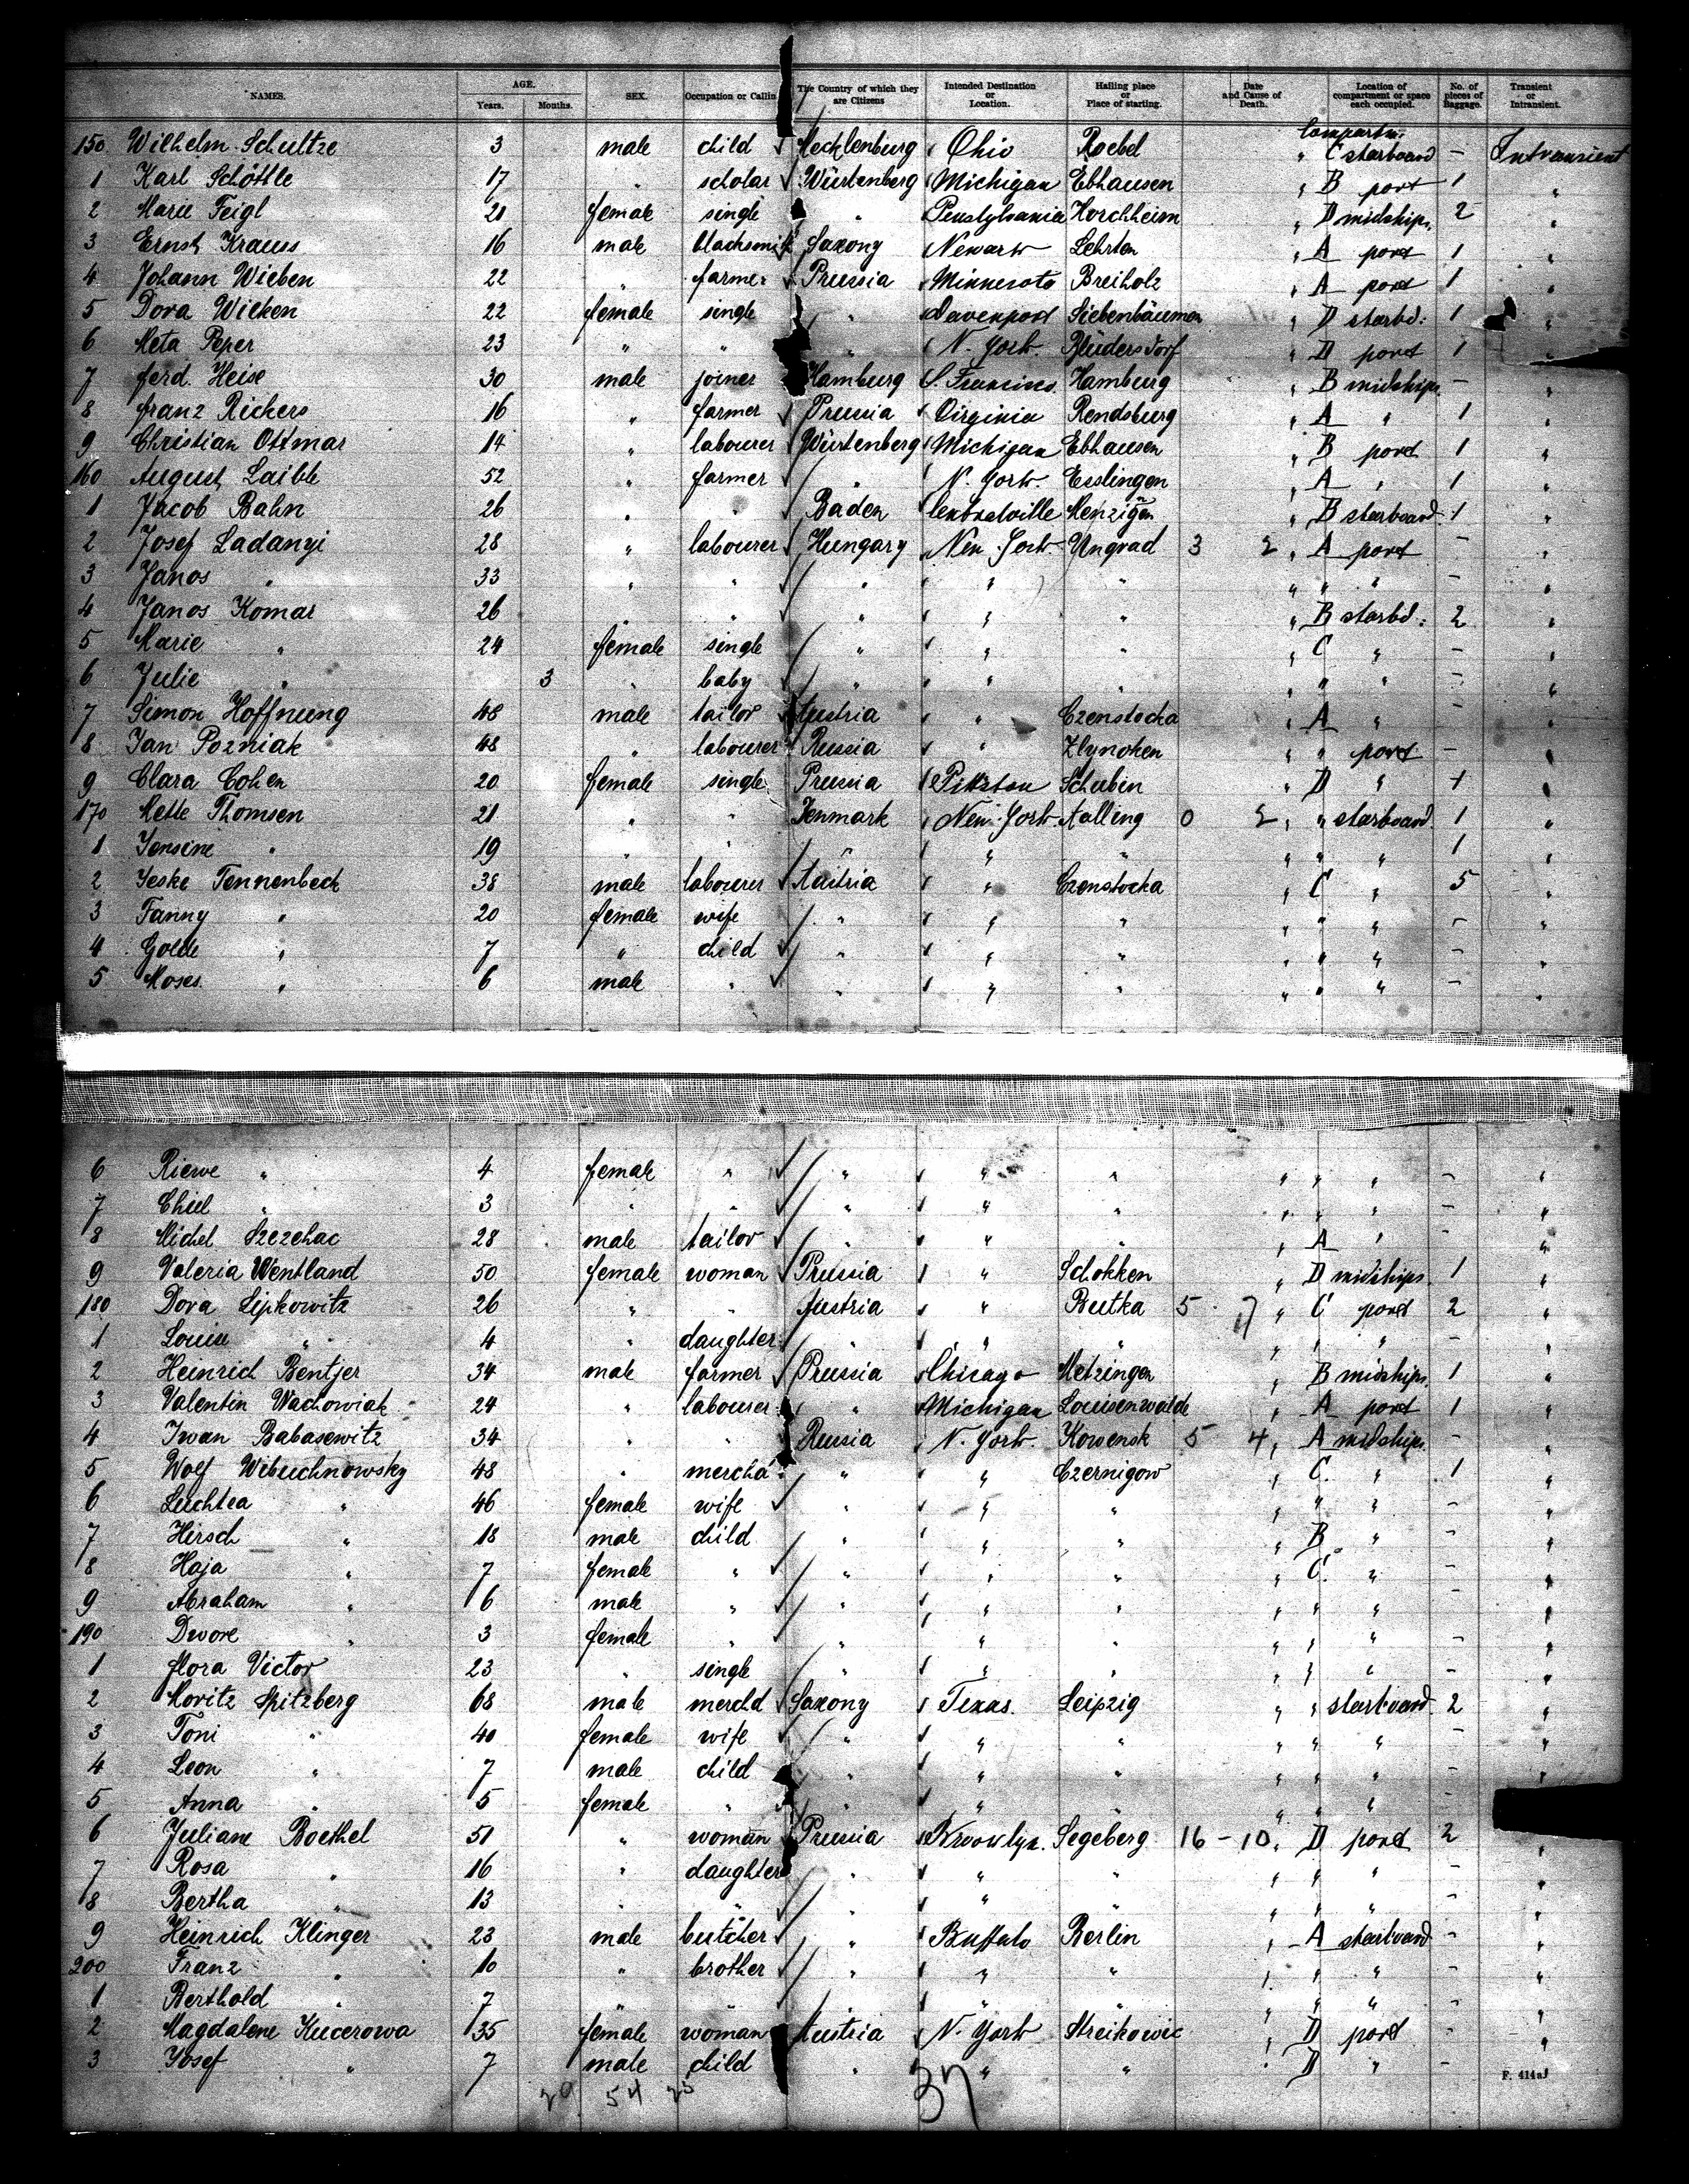 NAMES. AGE. Years. Months. SEX. Occupation or Callin The Country of which they are Citizens Intended Destination or Location. Hailing place or Place of starting. Date and Cause of Death. Location of compartment or space each occupied. No. of pieces of Baggage. Transient or Intransient.
Compartm.
150 Wilhelm Schultze 3 male child Mecklenburg Ohio Roebel " C starboard - Intransient
1 Karl Schöttle 17 " scholar Würtenberg Michigan Ebhausen " B port 1 "
2 Marie Feigl 21 female single " Penslylvania Horchheim " D midships 2 "
3 Ernst Krauss 16 male blacksmith Saxony Newark Lehrten " A port 1 "
4 Johann Wieben 22 " farmer Prussia Minnesota Breiholz " A port 1 "
5 Dora Wilken 22 female single " Davenport Siebenbäumen " D starbd. 1 "
6 Meta Peper 23 " " " N. York. Büdersdorf " D port 1 "
7 Ferd. Heise 30 male joiner Hamburg S. Francisco. Hamburg " B midships -
8 Franz Rickers 16 " farmer Prussia Virginia Rendsburg " A " 1 "
9 Christian Ottmar 14 " labourer Würtenberg Michigan Ebhausen " B port 1 "
160 August Laible 52 " farmer " N. York. Esslingen " A " 1 "
1 Jacob Bahn 26 " " Baden Centralville Menzigen " B starboard 1 "
2 Josef Ladanyi 28 " labourer Hungary New York Ungvad 3 2 " A port - "
3 Janos " 33 " " " " " " " " - "
4 Janos Komar 26 " " " " " " B starbd. 2 "
5 Marie " 24 female single " " " " C " - "
6 Julie " 3 " baby " " " " " " - "
7 Simon Hoffnung 48 male tailor Austria " Czenstocha " A " - "
8 Jan Pozniak 48 " labourer Russia " Zlynoken " " port - "
9 Clara Cohen 20 female single Prussia Pittston Schubin " D " 1 "
170 Mette Thomsen 21 " " Denmark New York. Aalling 0 2 " " starboard. 1 "
1 Jensine " 19 " " " " " " " " 1 "
2 Jeske Tennenbeck 38 male labourer Austria " Czenstocka " C " 5 "
3 Fanny " 20 female wife " " " " " " - "
4 Golde " 7 " child " " " " " " - "
5 Moses " 6 male " " " " " " " - "
6 Riewe " 4 female " " " " " " " - "
7 Chiel " 3 " " " " " " " " - "
8 Michel Szczehac 28 male tailor " " " " A " - "
9 Valeria Wentland 50 female woman Prussia " Schokken " D midships 1 "
180 Dora Lipkowitz 26 " " Austria " Butka 5 7 " C port 2 "
1 Louise " 4 " daughter " " " " " " - "
2 Heinrich Bentjer 34 male farmer Prussia Chicago Metzingen " B midships. 1 "
3 Valentin Wachowiak 24 " labourer " Michigan Louisenwalde " A port 1 "
4 Iwan Babasewitz 34 " " Russia N. York. Kowensk 5 4 " A midships. - "
5 Wolf Wibuchnowsky 48 " mercha " " Czernigow " C. " 1 "
6 Leichtea " 46 female wife " " " " " " - "
7 Hirsch " 18 male child " " " " B " - "
8 Haja " 7 female " " " " " C. " - "
9 Abraham " 6 male " " " " " " " - "
190 Dwore " 3 female " " " " " " " - "
1 Flora Victor 23 " single " " " " " " - "
2 Moritz Spitzberg 68 male merchd Saxony Texas. Leipzig " " starboard. 2 "
3 Toni " 40 female wife " " " " " " - "
4 Leon " 7 male child " " " " " " - "
5 Anna " 5 female " " " " " " " -
6 Juliane Boethel 51 " woman Prussia Broowlyn. Segeberg 16 - 10 " D port 2 "
7 Rosa " 16 " daughter " " " " " " - "
8 Bertha " 13 " " " " " " " " - "
9 Heinrich Klinger 23 male butcher " Buffalo Berlin " A starboard - "
200 Franz " 10 " brother " " " " " " - "
1 Berthold " 7 " " " " " " " " - "
2 Magdalene Kucerowa 35 female woman Austria N. York Streikowic " D port - "
3 Josef " 7 male child " " " " D " -
29 54 25 37
F. 414a